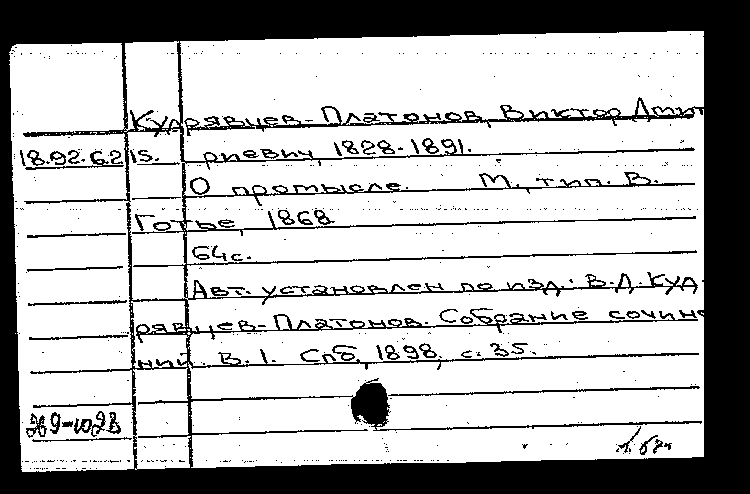 Кудрявцев-Платонов, Виктор Дмит
18.92.6.215. риевич, 1828-1891.
О промысле. М., тип. В.
Готье, 1868
64с.
Авт. установлен по изд.: В.Д. Куд-
рявцев-Платонов. Собрание сочине
ний. В. 1. Спб., 1898, с. 35.